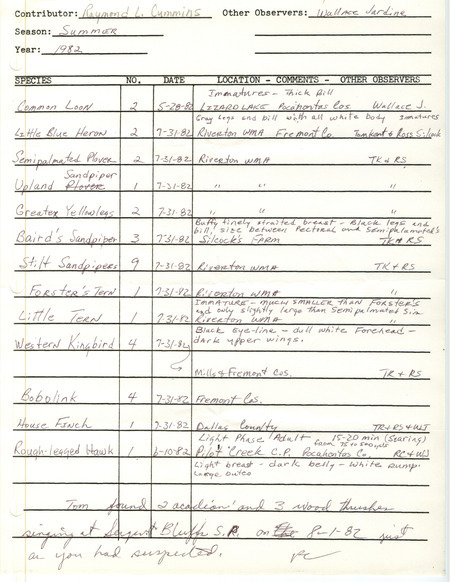 Contributor: Raymond L. Cummins Other Observers: Wallace Jardine
Season: Summer
Year: 1982
SPECIES NO. DATE LOCATION - COMMENTS - OTHER OBSERVERS
Immatures - Thick Bill
Common Loon 2 5-28-82 LIZARD LAKE Pocahontas Cos. Wallace J.
Gray legs and bill with all white body immatures
Little Blue Heron 2 7-31-82 Riverton WMA Fremont Co. Tom Kent & Ross Silcock
Semipalmated Plover 2 7-31-82 Riverton WMA TK & RS
Sandpiper
Upland Plover 1 7-31-82 " " "
Greater Yellowlegs 2 7-31-82 " " "
Buffy finely straited breast - Black legs and
bill, size between Pectoral and Semipalmated's
Baird's Sandpiper 3 7-31-82 Silcock's FARM TK & RS
Stilt Sandpipers 9 7-31-82 Riverton WMA TK & RS
Forster's Tern 1 7-31-82 Riverton WMA "
IMMATURE - MUCH SMALLER THAN FORSTER'S
and only slightly large than Semipalmated
Little Tern 1 7-31-82 Riverton WMA "
Black eye-line - dull white Forehead -
Western Kingbird 4 7-31-82 dark upper wings.
Mills & Fremont Cos. TK & RS
Bobolink 4 7-31-82 Fremont Cos.
House Finch 1 7-31-82 Dallas County TK & RS & WJ
Light Phase Adult 15-20 min (Soaring)
from 75 to 500 yds
Rough-legged Hawk 1 6-10-82 Pilot Creek C.P. Pocahontas Co. RC & WJ
Light breast - dark belly - White rump.
Tom found 2 acadian and 3 wood thrushes
singing at Sergent Bluffs S.P. on 8-1-82 just
as you had suspected. RC